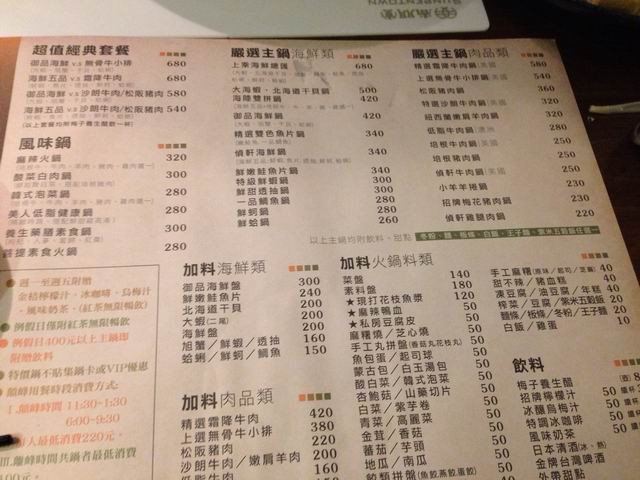 SUNPENTOWN
超值經典套餐
御品海鮮 v.s 無骨牛小排 680
海鮮五品 v.s 霜降牛肉 680
御品海鮮 v.s 沙朗牛肉/松阪豬肉 580
海鮮五品 v.s 沙朗牛肉/松阪豬肉 540
風味鍋
麻辣火鍋 320
酸菜白肉鍋 300
韓式泡菜鍋 280
美人低脂健康鍋 280
養生藥膳素食鍋 300
菩提素食火鍋 280
嚴選主鍋海鮮類
上乘海鮮總匯 680
大海蝦‧北海道干貝鍋 500
海陸雙拼鍋 420
御品海鮮鍋 420
精選雙色魚片鍋 340
偵軒海鮮鍋 340
鮮嫩鮭魚片鍋 340
特級鮮蝦鍋 300
鮮甜透抽鍋 300
一品鯛魚鍋 280
鮮蚵鍋 280
鮮蛤鍋 260
嚴選主鍋肉品類
精選霜降牛肉鍋 美國 580
上選無骨牛小排鍋 美國 540
松阪豬肉鍋 360
特選沙朗牛肉鍋 美國 320
紐西蘭嫩肩羊肉鍋 320
低脂牛肉鍋 澳洲 280
培根牛肉鍋 美國 250
培根豬肉鍋 250
偵軒牛肉鍋 美國 250
小羊羊捲鍋 230
招牌梅花豬肉鍋 230
偵軒雞腿肉鍋 220
以上主鍋均附飲料、甜點
加料海鮮類
御品海鮮盤 300
鮮嫩鮭魚片 240
北海道干貝 200
大蝦(二尾) 200
海鮮盤 200
旭蟹/鮮蝦/透抽 160
蛤蜊/鮮蚵/鯛魚 150
加料肉品類
精選霜降牛肉 420
上選無骨牛小排 380
松阪豬肉 220
沙朗牛肉/嫩肩羊肉 200
160
加料火鍋料類
菜盤 140
素料盤 180
★現打花枝魚漿 120
★麻辣鴨血 50
★私房豆腐皮 50
麻糬燒/芝心燒 50
手工丸拼盤(香菇丸花枝丸) 50
魚包蛋/起司球 50
蒙古包/白玉湯包 50
酸白菜/韓式泡菜 50
杏鮑菇/山藥切片 50
白菜/紫芋卷 50
青菜/高麗菜 50
金茸/香菇 50
蕃茄/芋頭 50
地瓜/南瓜 50
餃類拼盤(魚餃燕餃蛋餃) 50
手工麻糬(原味/起司/芝麻) 40
甜不辣/豬血糕 40
凍豆腐/油豆腐/年糕 30
榨菜/豆腐/紫米五穀飯 20
麵條/板條/冬粉/王子麵 20
白飯/雞蛋 10
飲料
梅子養生醋
招牌檸檬汁 50
冰釀烏梅汁 50
特調冰咖啡 50
風味奶茶 50
日本清酒(冰、熱)
金牌台灣啤酒
外帶甜點
週一至週五附贈
金桔檸檬汁、冰咖啡、烏梅汁
、風味奶茶、(紅茶無限暢飲)
例假日僅附紅茶無限暢飲
例假日400元以上主鍋即
附贈飲料
特價鍋不貼集鍋卡或VIP優惠
顛峰用餐時段消費方式:
I.顛峰時間 11:30-1:30
6:00-9:30
每人最低消費220元。
II.離峰時間共鍋者最低消費
100元。